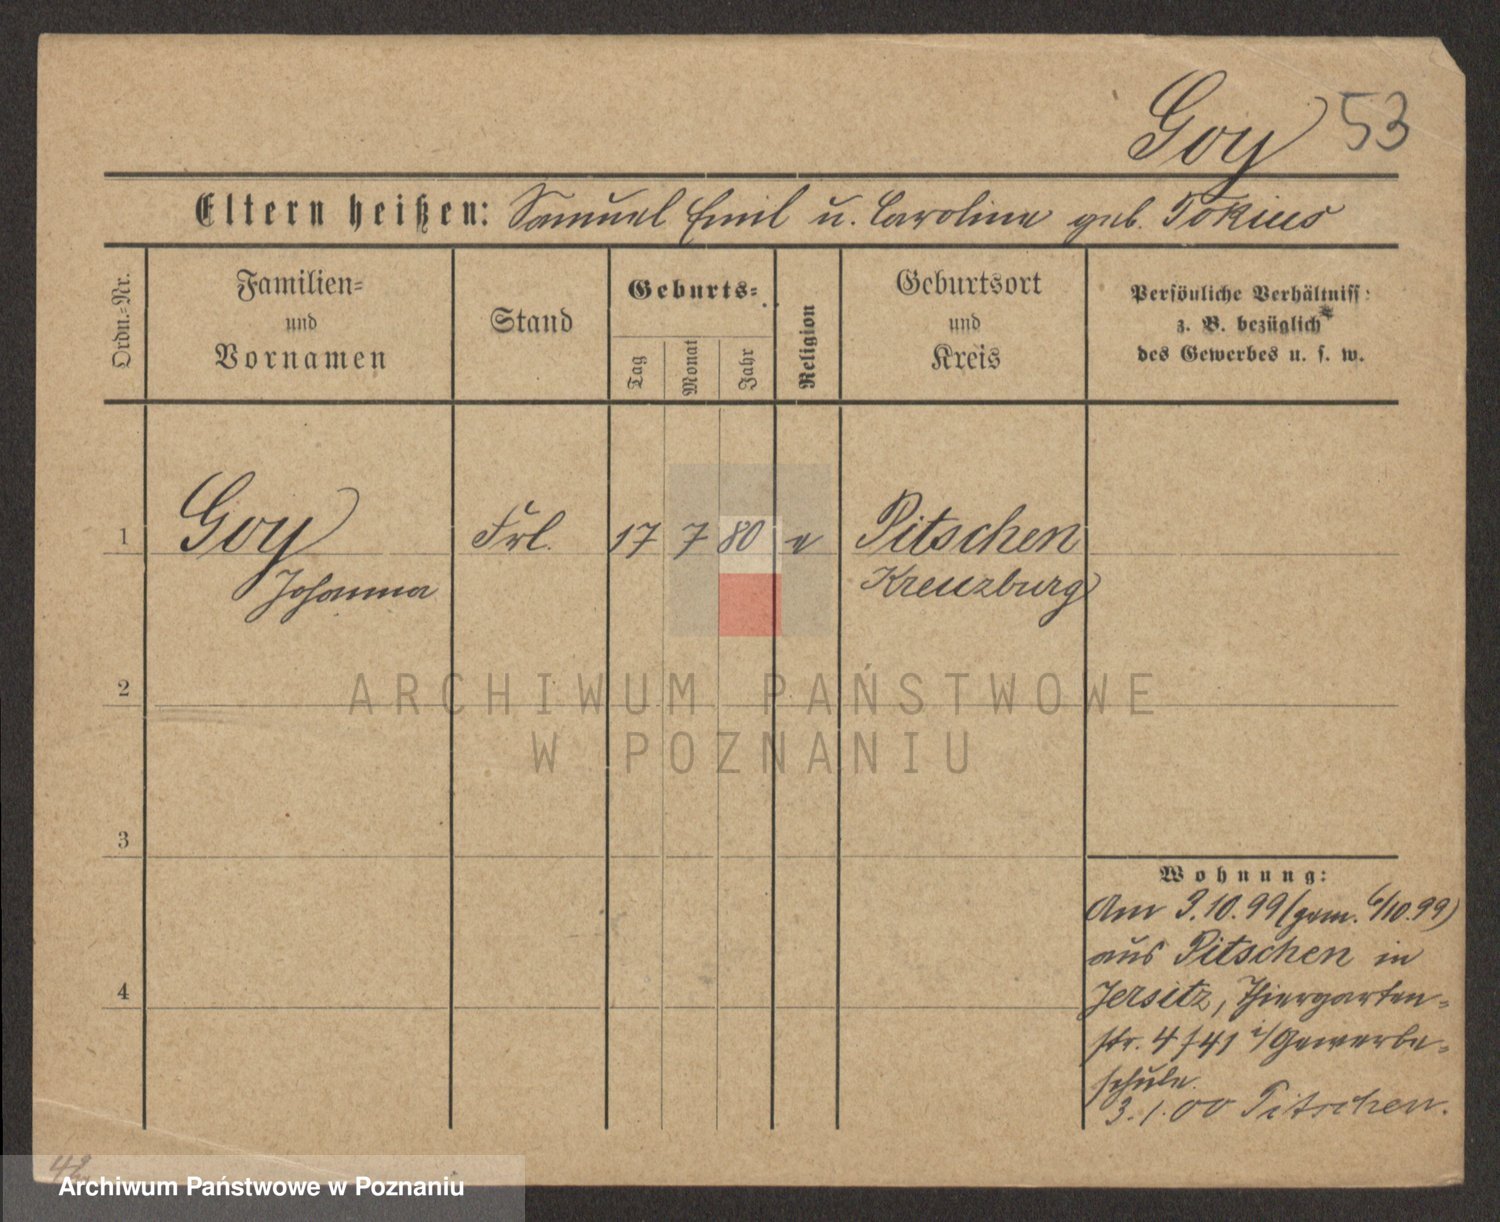 Goy 53
Eltern heißen: Samuel Emil u. Caroline geb. Tokius
Ordn.-Nr.
Familien-
und
Vornamen
Stand
Geburts-
Tag
Monat
Jahr
Religion
Geburtsort
und
Kreis
Persönliche Verhältniss
z. B. bezüglich
des Gewerbes u. s. w.
1 Goy Frl. 17 7 80 e Pitschen
Johanna Kreuzburg
ARCHIWUM PAŃSTWOWE
W POZNANIU
2
3
4
Wohnung:
Am 3.10.99 (gem. 6/10.99)
aus Pitschen in
Jersitz, Thiergarten-
str. 4/41 i/Gewerbe-
schule.
3.1.00 Pitschen.
Archiwum Państwowe w Poznaniu